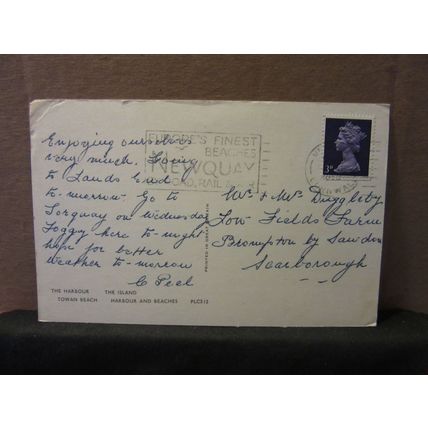 Enjoying ourselves
very much. Going
to Lands End
to-morrow. Go to
Torquay on Wednesday
Foggy here to-night
hope for better
weather to-morrow
C Peel
THE HARBOUR THE ISLAND
TOWAN BEACH HARBOUR AND BEACHES PLC512
PRINTED IN GREAT BRITAIN
EUROPE'S FINEST
BEACHES
NEWQUAY
ROAD, RAIL
3D
CORNWALL
Mr & Mrs Duggleby
Low Fields Farm
Brompton by Sawdon
Scarborough